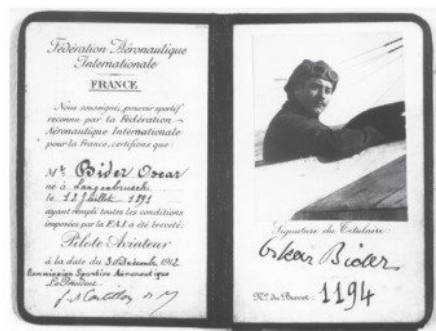 Fédération Aéronautique
Internationale
FRANCE
Nous soussignés, pouvoir sportif
reconnu par la Fédération
Aéronautique Internationale
pour la France, certifions que:
Mr. Bider Oscar
né à Langenbruck
le 12 Juillet 1891
ayant rempli toutes les conditions
imposées par la F.A.I. a été breveté:
Pilote Aviateur
à la date du 3 Décembre 1912
Commission Sportive Aéronautique
Le Président
Signature du Titulaire
Oskar Bider
No. du Brevet: 1194